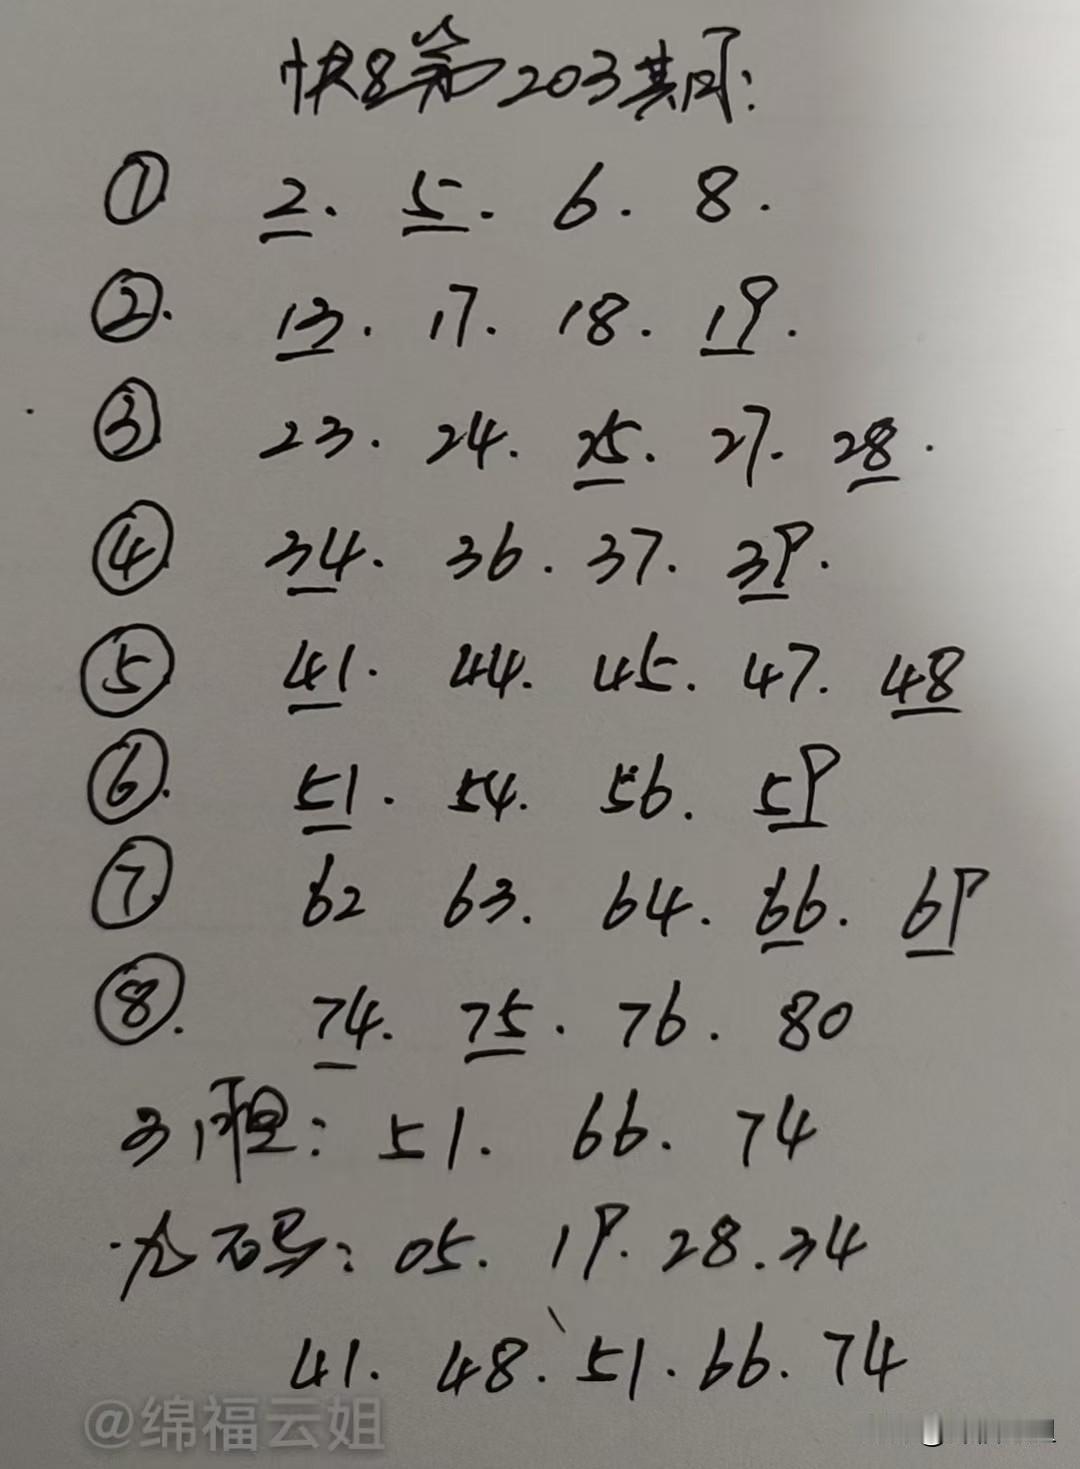 快8第203期:
① 2. 5. 6. 8.
②. 13. 17. 18. 19.
③ 23. 24. 25. 27. 28.
④ 34. 36. 37. 39.
⑤ 41. 44. 45. 47. 48
⑥. 51. 54. 56. 59
⑦ 62 63. 64. 66. 69
⑧. 74. 75. 76. 80
胆: 51. 66. 74
九码: 05. 19. 28. 34
41. 48. 51. 66. 74
@绵福云姐